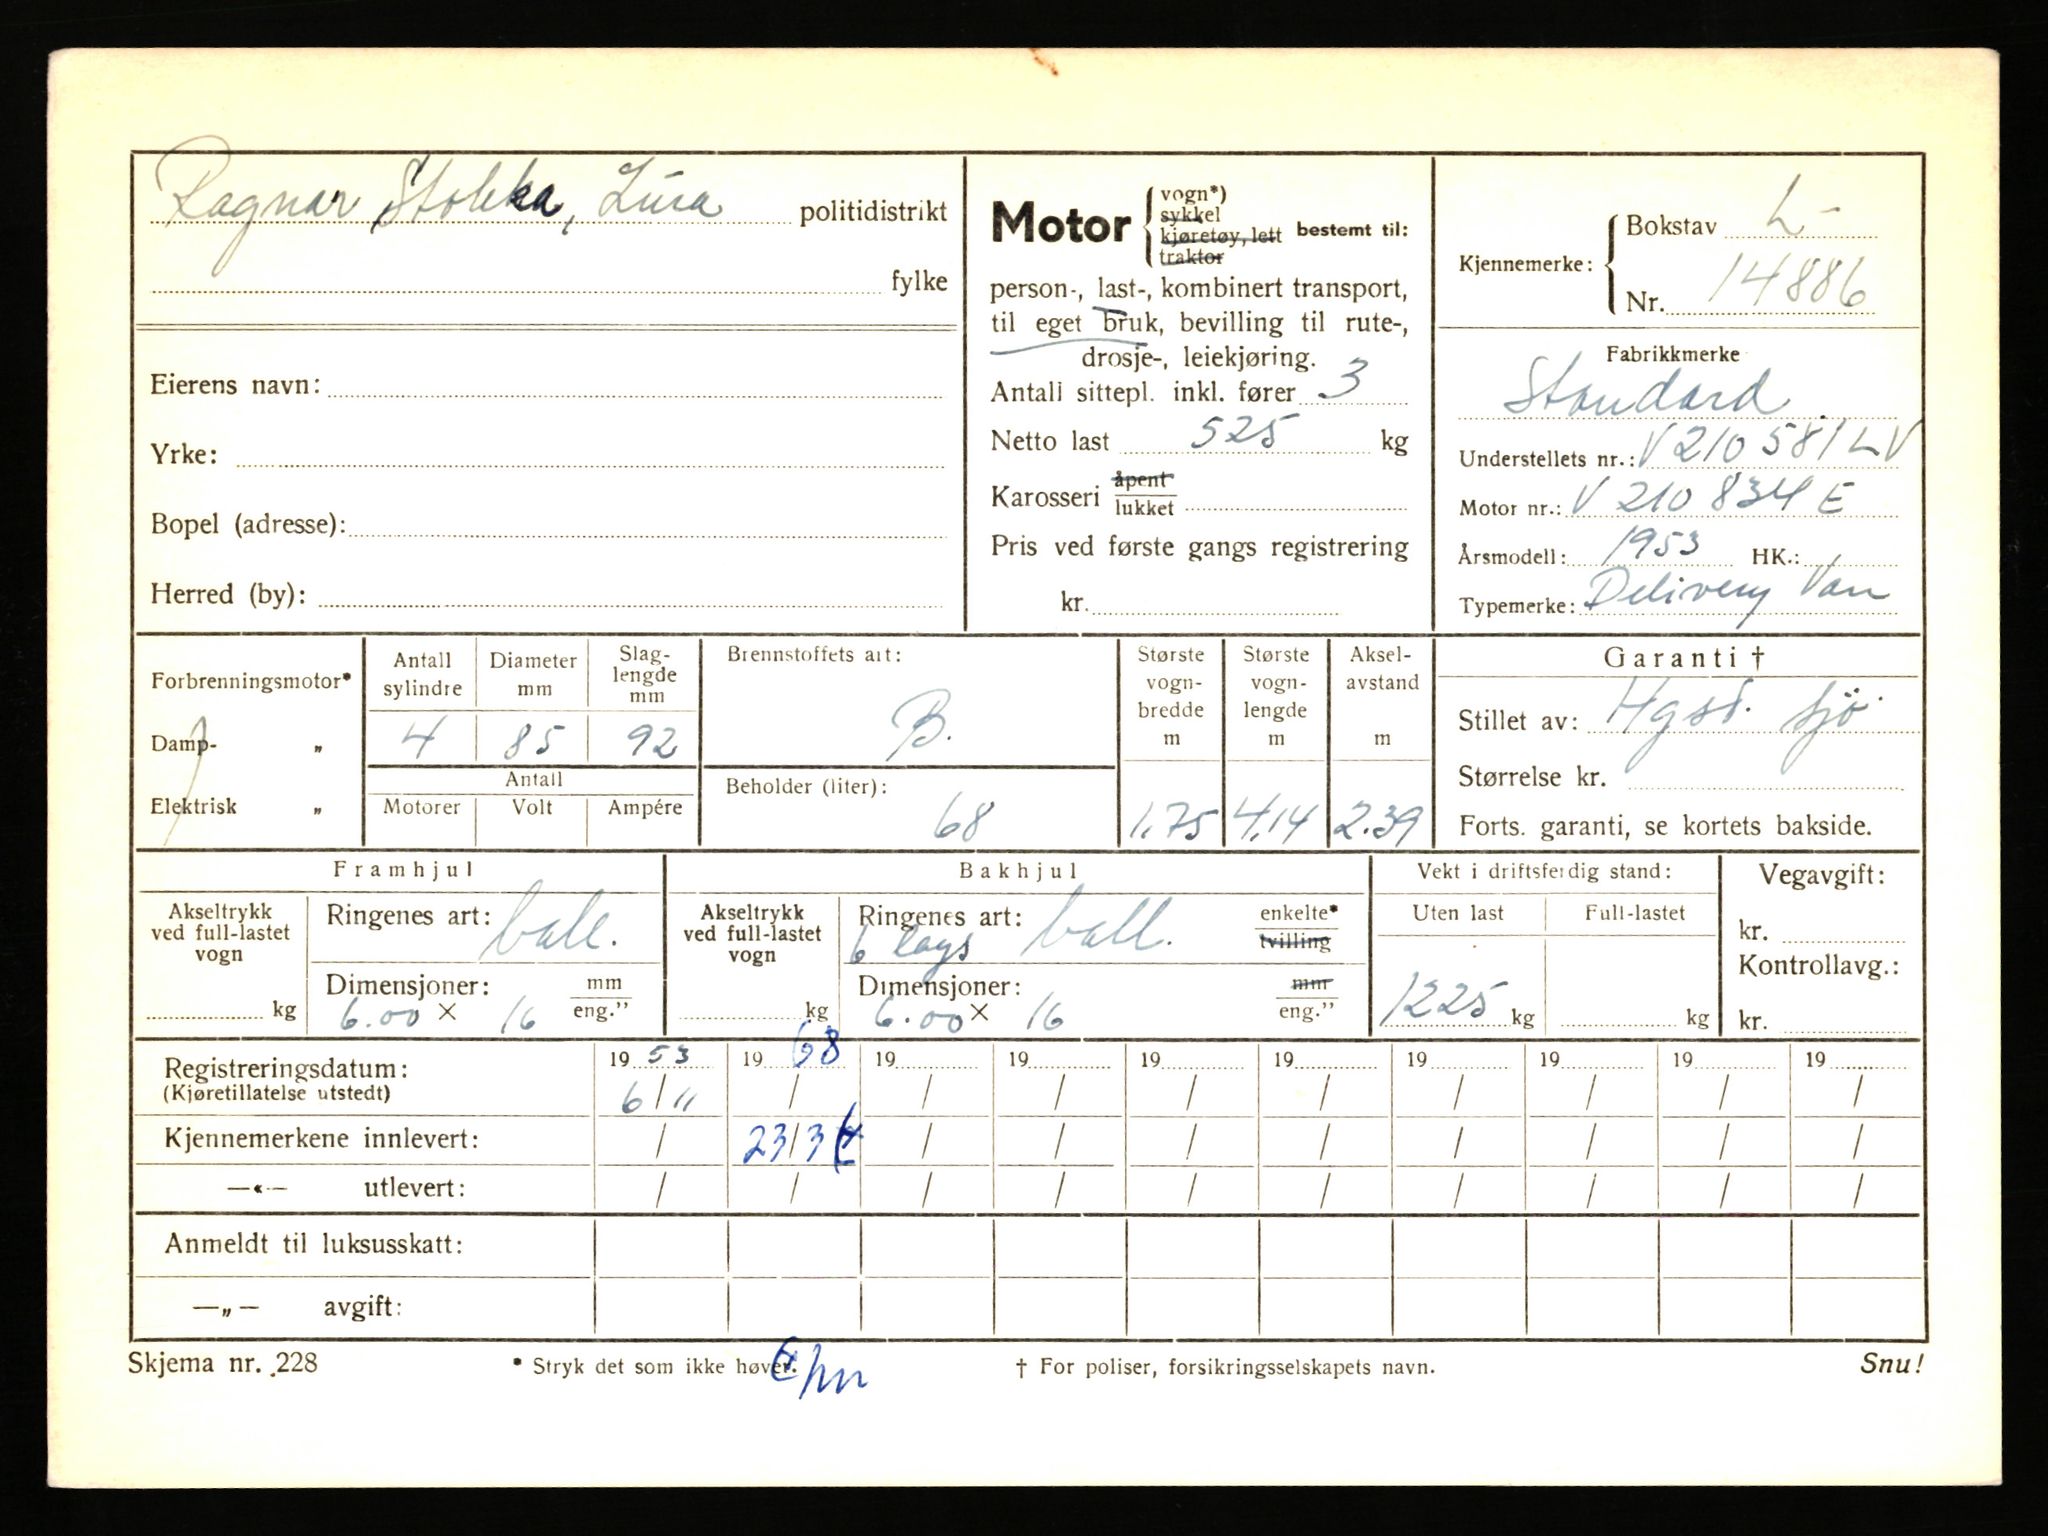 Ragnar Stokka, Lura politidistrikt
fylke
Eierens navn:
Yrke:
Bopel (adresse):
Herred (by):
Motor { vogn*)
sykkel
kjøretøy, lett
traktor
bestemt til:
person-, last-, kombinert transport,
til eget bruk, bevilling til rute-,
drosje-, leiekjøring.
Antall sittepl. inkl. fører 3
Netto last 525 kg
Karosseri åpent
lukket
Pris ved første gangs registrering
kr.
Kjennemerke: { Bokstav L-
Nr. 14886
Fabrikkmerke
Standard
Understellets nr.: V 210581 LV
Motor nr.: V 210834 E
Årsmodell: 1953 HK.:
Typemerke: Delivery Van
Forbrenningsmotor*
Damp- „
Elektrisk „
Antall sylindre
4
Diameter mm
85
Slag-lengde mm
92
Antall
Motorer Volt Ampére
Brennstoffets art:
B.
Beholder (liter):
68
Største vogn-bredde m
1.75
Største vogn-lengde m
4.14
Aksel-avstand m
2.39
Garanti †
Stillet av: Hgsd. Sjö.
Størrelse kr.
Forts. garanti, se kortets bakside.
Framhjul
Akseltrykk
ved full-lastet
vogn
kg
Ringenes art: ball.
Dimensjoner: mm
6.00 × 16 eng.”
Bakhjul
Akseltrykk
ved full-lastet
vogn
kg
Ringenes art: ball. enkelte*
6 lags tvilling
Dimensjoner: mm
6.00 × 16 eng.”
Vekt i driftsferdig stand:
Uten last Full-lastet
1225 kg kg
Vegavgift:
kr.
Kontrollavg.:
kr.
Registreringsdatum: 19 53 19 68 19 19 19 19 19 19 19 19
(Kjøretillatelse utstedt) 6/11 / / / / / / / / /
Kjennemerkene innlevert: / 23/3 / / / / / / / /
—«— utlevert: / / / / / / / / / /
Anmeldt til luksusskatt:
—„— avgift:
Skjema nr. 228 * Stryk det som ikke høver. † For poliser, forsikringsselskapets navn. Snu!